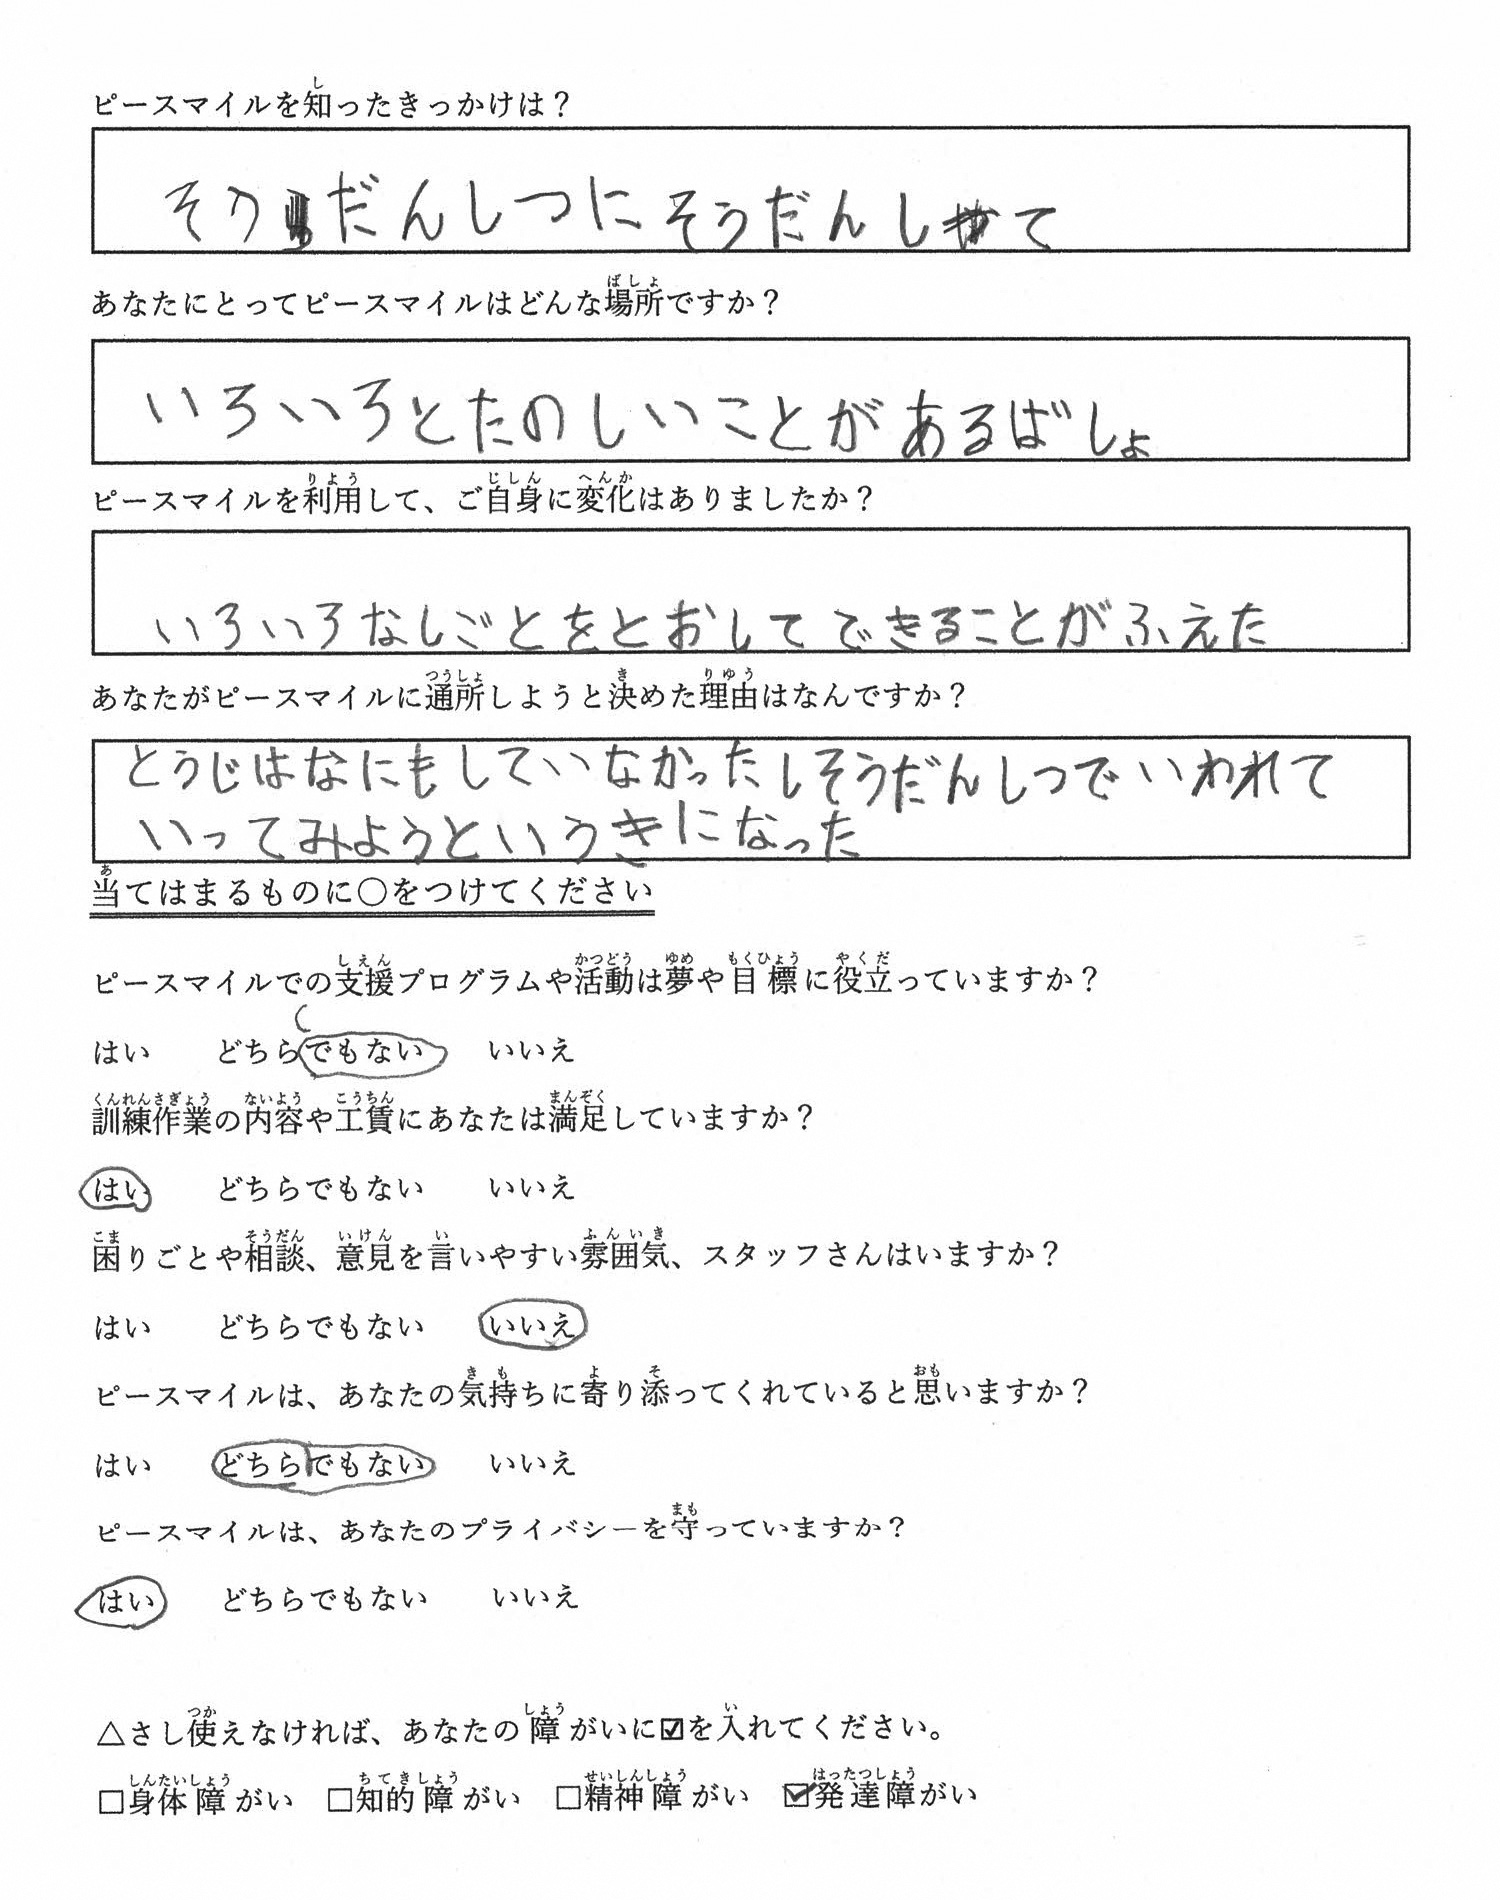 ピースマイルを知ったきっかけは？
そうだんしつにそうだんして
あなたにとってピースマイルはどんな場所ですか？
いろいろとたのしいことがあるばしょ
ピースマイルを利用して、ご自身に変化はありましたか？
いろいろなしごとをとおしてできることがふえた
あなたがピースマイルに通所しようと決めた理由はなんですか？
とうじはなにもしていなかったしそうだんしつでいわれて
いってみようというきになった
当てはまるものに○をつけてください
ピースマイルでの支援プログラムや活動は夢や目標に役立っていますか？
はい どちらでもない いいえ
訓練作業の内容や工賃にあなたは満足していますか？
はい どちらでもない いいえ
困りごとや相談、意見を言いやすい雰囲気、スタッフさんはいますか？
はい どちらでもない いいえ
ピースマイルは、あなたの気持ちに寄り添ってくれていると思いますか？
はい どちらでもない いいえ
ピースマイルは、あなたのプライバシーを守っていますか？
はい どちらでもない いいえ
△さし使えなければ、あなたの障がいに☑を入れてください。
□身体障がい □知的障がい □精神障がい ☑発達障がい